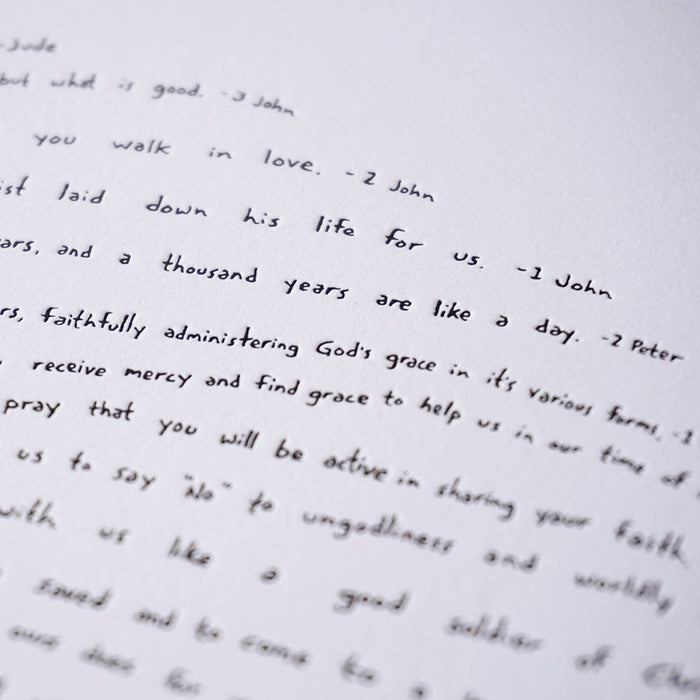 -Jude
but what is good. -3 John
you walk in love. -2 John
ist laid down his life for us. -1 John
ars, and a thousand years are like a day. -2 Peter
rs, faithfully administering God's grace in it's various forms. -1
receive mercy and find grace to help us in our time of
pray that you will be active in sharing your faith
us to say "No" to ungodliness and worldly
with us like a good soldier of Chr
saved and to come to a
ous does for